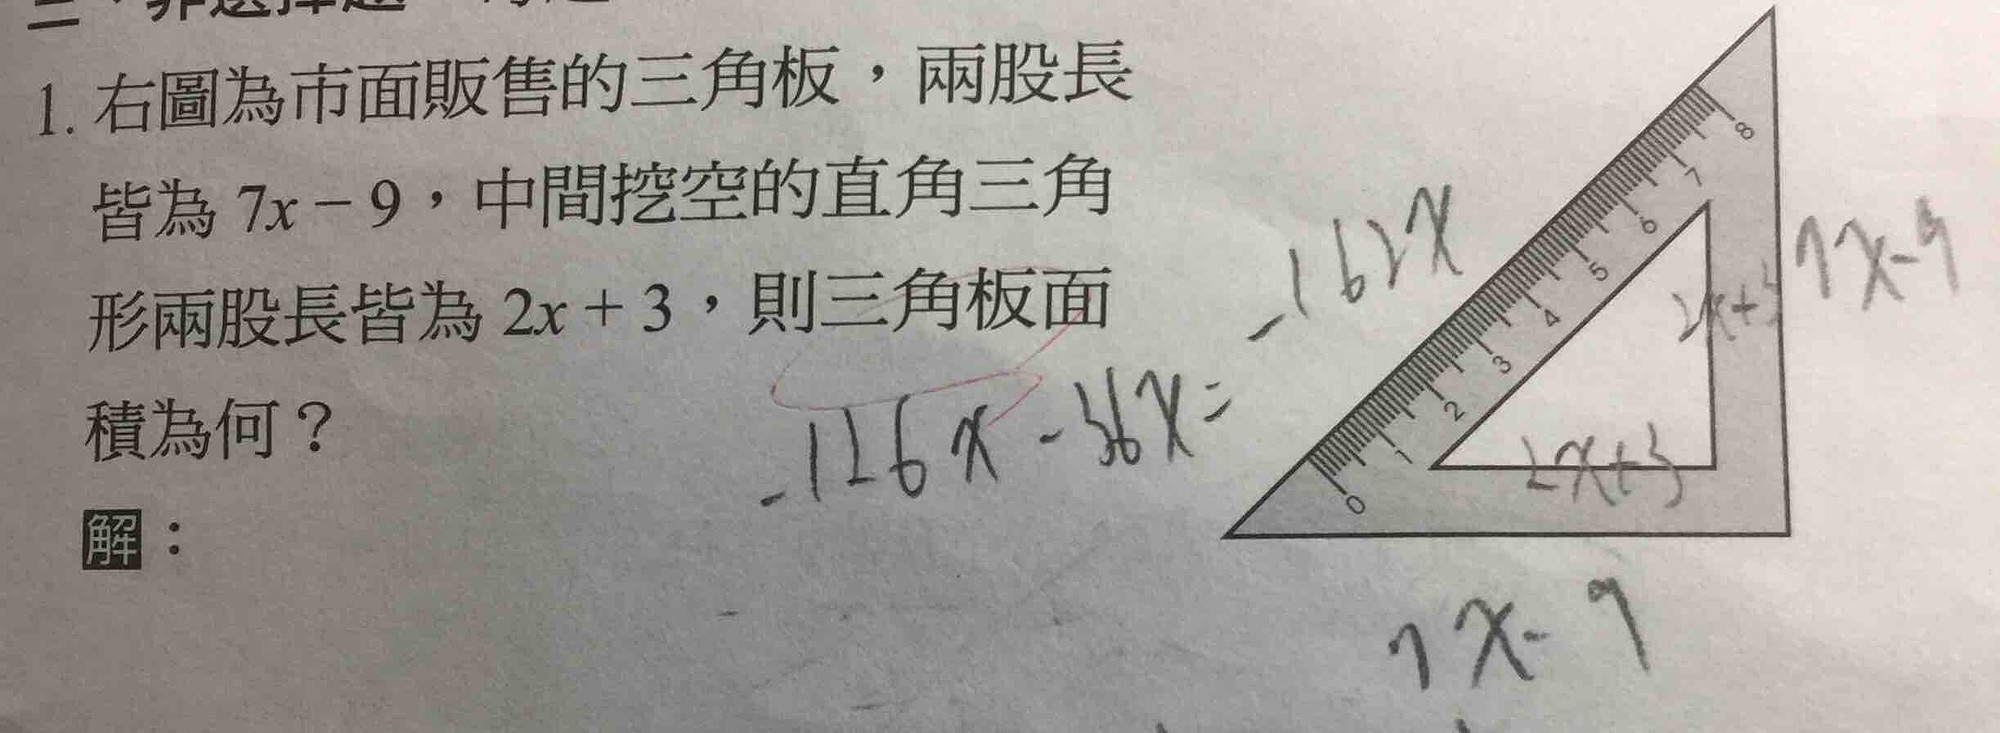 1. 右圖為市面販售的三角板，兩股長
皆為 7x − 9，中間挖空的直角三角
形兩股長皆為 2x + 3，則三角板面
積為何？
解：
-126x - 36x =
-162x
0 1 2 3 4 5 6 7 8
2x+3
7x-9
2x+3
7x-9